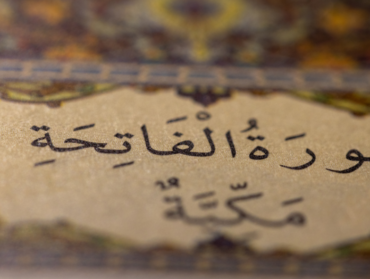 ورَةُ الْفَاتِحَةِ
مَكِّيَّةٌ